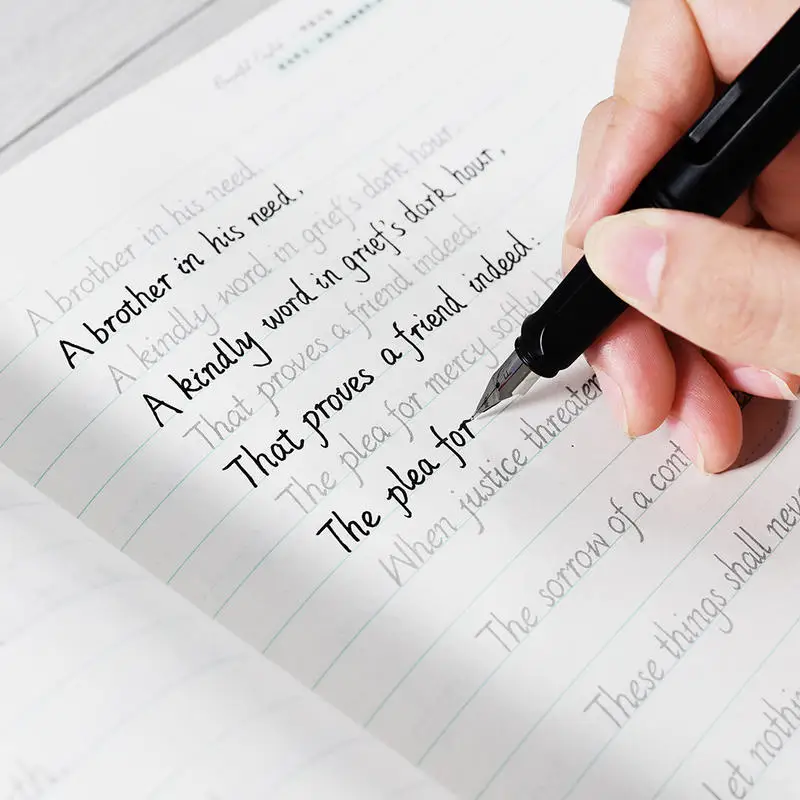 Beautiful English
A brother in his need.
A brother in his need.
A kindly word in grief's dark hour.
A kindly word in grief's dark hour,
That proves a friend indeed.
That proves a friend indeed:
The plea for mercy softly
The plea for
When justice threaten
The sorrow of a cont
These things shall
Let